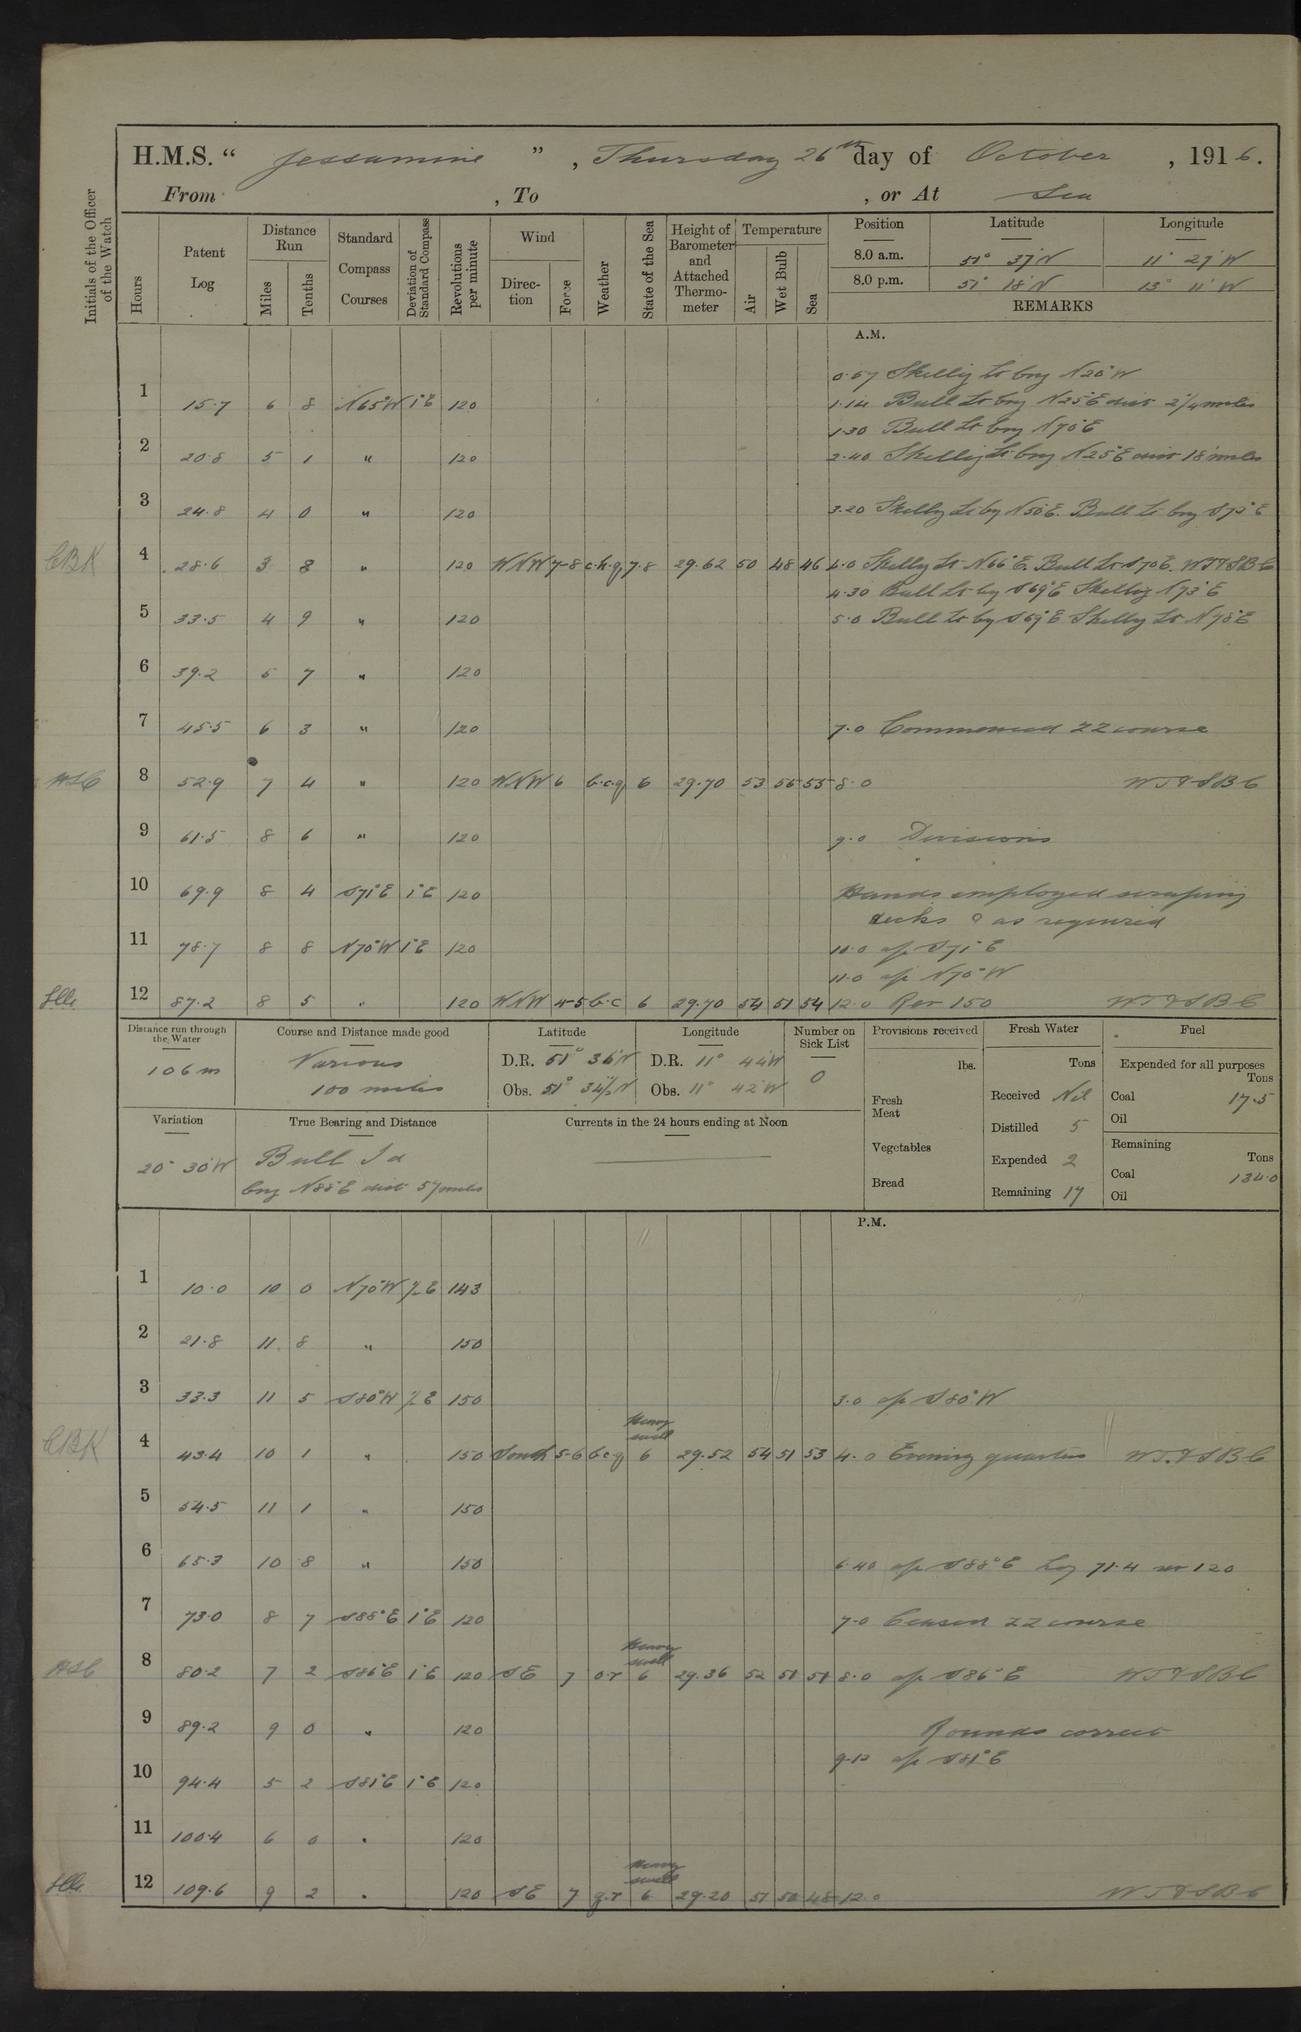 H.M.S. " Jessamine ", Thursday 26th day of October, 1916.
From , To , or At Sea
Initials of the Officer of the Watch
Hours
Patent Log
Distance Run
Miles
Tenths
Standard Compass Courses
Deviation of Standard Compass
Revolutions per minute
Wind
Direction
Force
Weather
State of the Sea
Height of Barometer and Attached Thermometer
Temperature
Air
Wet Bulb
Sea
Position Latitude Longitude
8.0 a.m. 51° 37'N 11° 27'W
8.0 p.m. 51° 18'N 13° 11'W
REMARKS
A.M.
0.57 Skellig Lt brg N20°W
1 15.7 6 8 N65°W 1°E 120 1.14 Bull Lt brg N25°E dist 2 1/4 miles
1.30 Bull Lt brg N70°E
2 20.8 5 1 " 120 2.40 Skellig Lt brg N25°E dist 18 miles
3 24.8 4 0 " 120 3.20 Skellig Lt brg N50°E. Bull Lt brg S73°E
CBK 4 28.6 3 8 " 120 WNW 7-8 c.h.q 7.8 29.62 50 48 46 4.0 Skellig Lt N66°E. Bull Lt S70°E. WT&SBC
4.30 Bull Lt brg S69°E Skellig N73°E
5 33.5 4 9 " 120 5.0 Bull Lt brg S69°E Skellig Lt N78°E
6 39.2 5 7 " 120
7 45.5 6 3 " 120 7.0 Commenced ZZ course
HSC 8 52.9 7 4 " 120 WNW 6 b.c.q 6 29.70 53 55 55 8.0 WT&SBC
9 61.5 8 6 " 120 9.0 Divisions
10 69.9 8 4 S71°E 1°E 120 Hands employed scraping
decks & as required
11 78.7 8 8 N70°W 1°E 120 10.0 a/c S71°E
11.0 a/c N70°W
12 87.2 8 5 " 120 WNW 4-5 b.c 6 29.70 54 51 54 12.0 Rev 150 WT&SBC
Distance run through the Water
106 m
Course and Distance made good
Various
100 miles
Latitude
D.R. 51° 36'N
Obs. 51° 34 1/2'N
Longitude
D.R. 11° 44'W
Obs. 11° 42'W
Number on Sick List
0
Provisions received
lbs.
Fresh Meat
Vegetables
Bread
Fresh Water
Tons
Received Nil
Distilled 5
Expended 2
Remaining 17
Fuel
Expended for all purposes
Tons
Coal 17.5
Oil
Remaining
Tons
Coal 134.0
Oil
Variation
20° 30'W
True Bearing and Distance
Bull Id
brg N88°E dist 57 miles
Currents in the 24 hours ending at Noon
P.M.
1 10.0 10 0 N70°W 1/2E 143
2 21.8 11 8 " 150
3 33.3 11 5 S80°W 1/2E 150 3.0 a/c S80°W
Heavy swell
CBK 4 43.4 10 1 " 150 South 5-6 b.c.q 6 29.52 54 51 53 4.0 Evening quarters WT&SBC
5 54.5 11 1 " 150
6 65.3 10 8 " 150 6.40 a/c S88°E Log 71.4 rev 120
7 73.0 8 7 S88°E 1°E 120 7.0 Ceased ZZ course
Heavy swell
HSC 8 80.2 7 2 S86°E 1°E 120 SE 7 o.r 6 29.36 52 51 51 8.0 a/c S86°E WT&SBC
9 89.2 9 0 " 120 Rounds correct
9.10 a/c S81°E
10 94.4 5 2 S81°E 1°E 120
11 100.4 6 0 " 120
Heavy swell
12 109.6 9 2 " 120 SE 7 q.r 6 29.20 51 50 48 12.0 WT&SBC